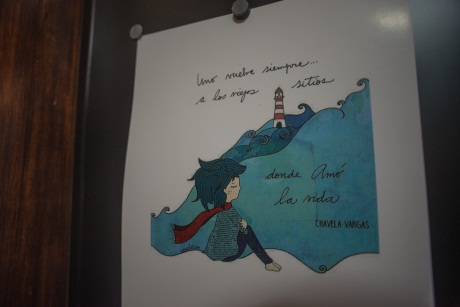 Uno vuelve siempre...
a los viejos sitios
donde Amó
la vida
CHAVELA VARGAS